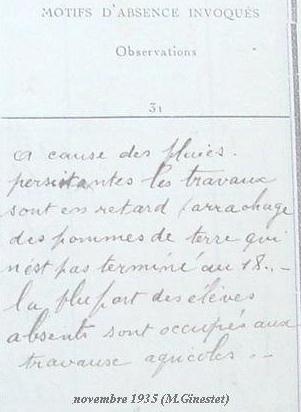 MOTIFS D'ABSENCE INVOQUÉS
Observations
31
a cause des pluies.
persistantes les travaux
sont en retard (arrachage
des pommes de terre qui
n'est pas terminé au 18.. –
la plupart des élèves
absents sont occupés aux
travause agricoles . –
novembre 1935 (M.Ginestet)